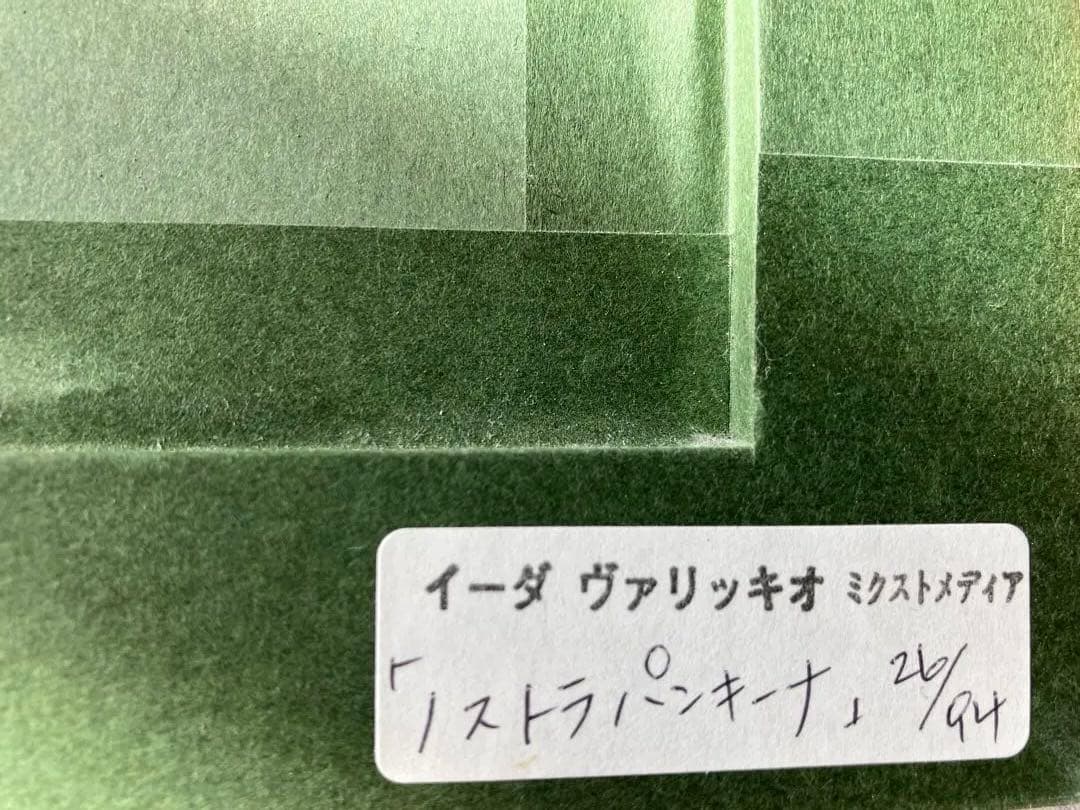 イーダ ヴァリッキオ ミクストメディア
「ノストラパンキーナ」 26/94